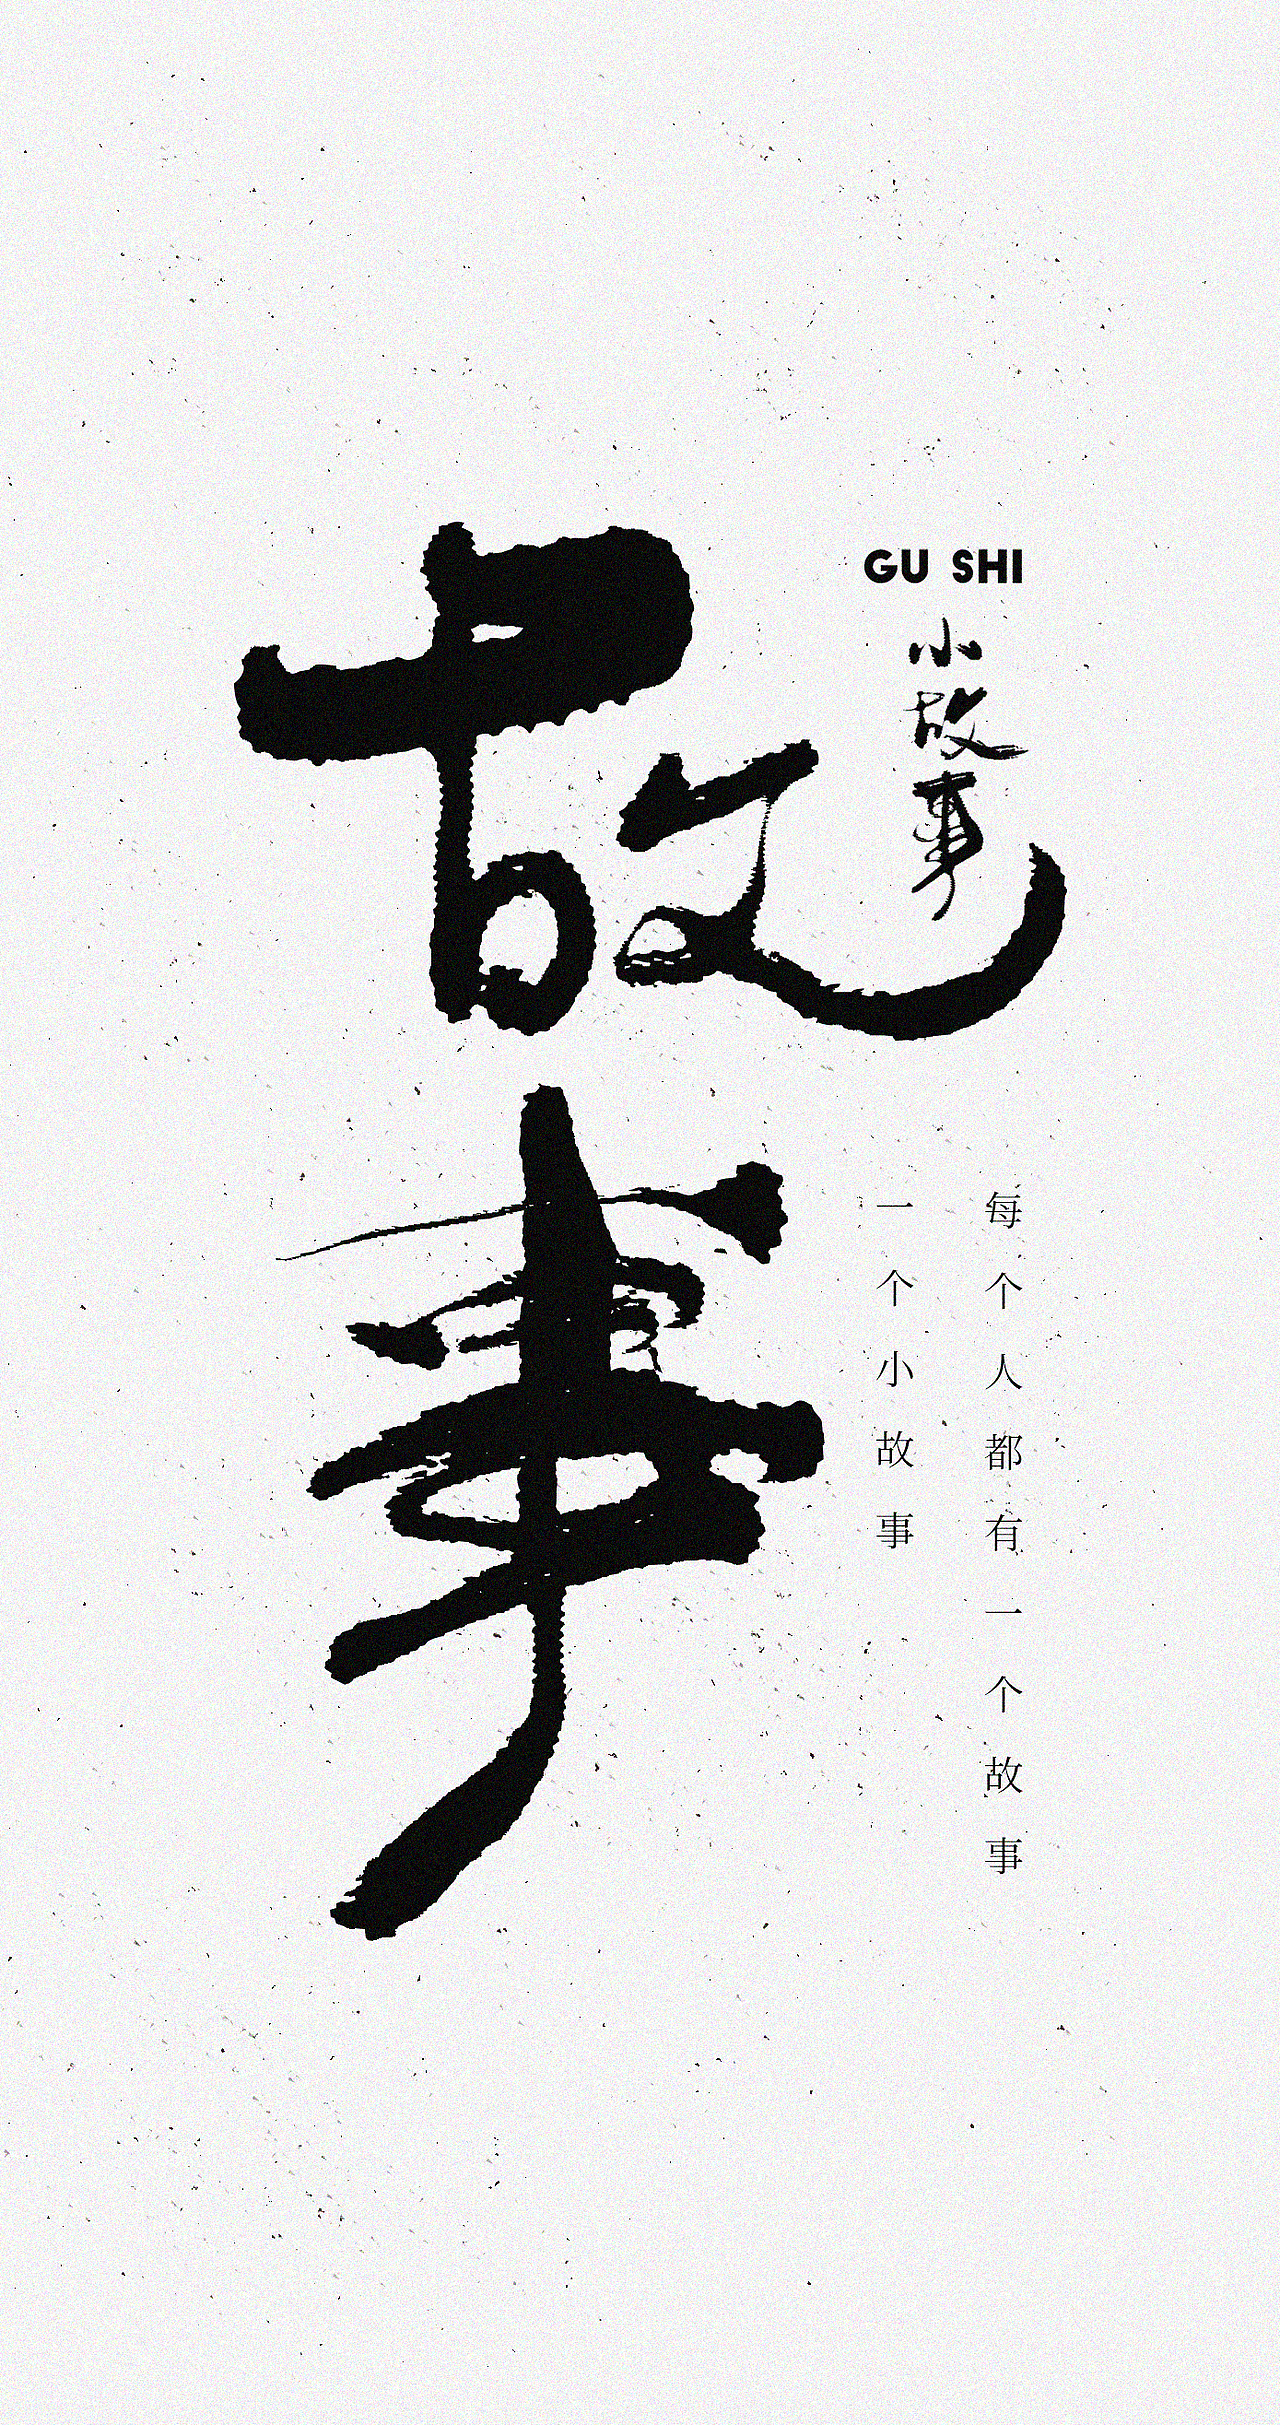 故事
GU SHI
小故事
每个人都有一个故事
一个小故事